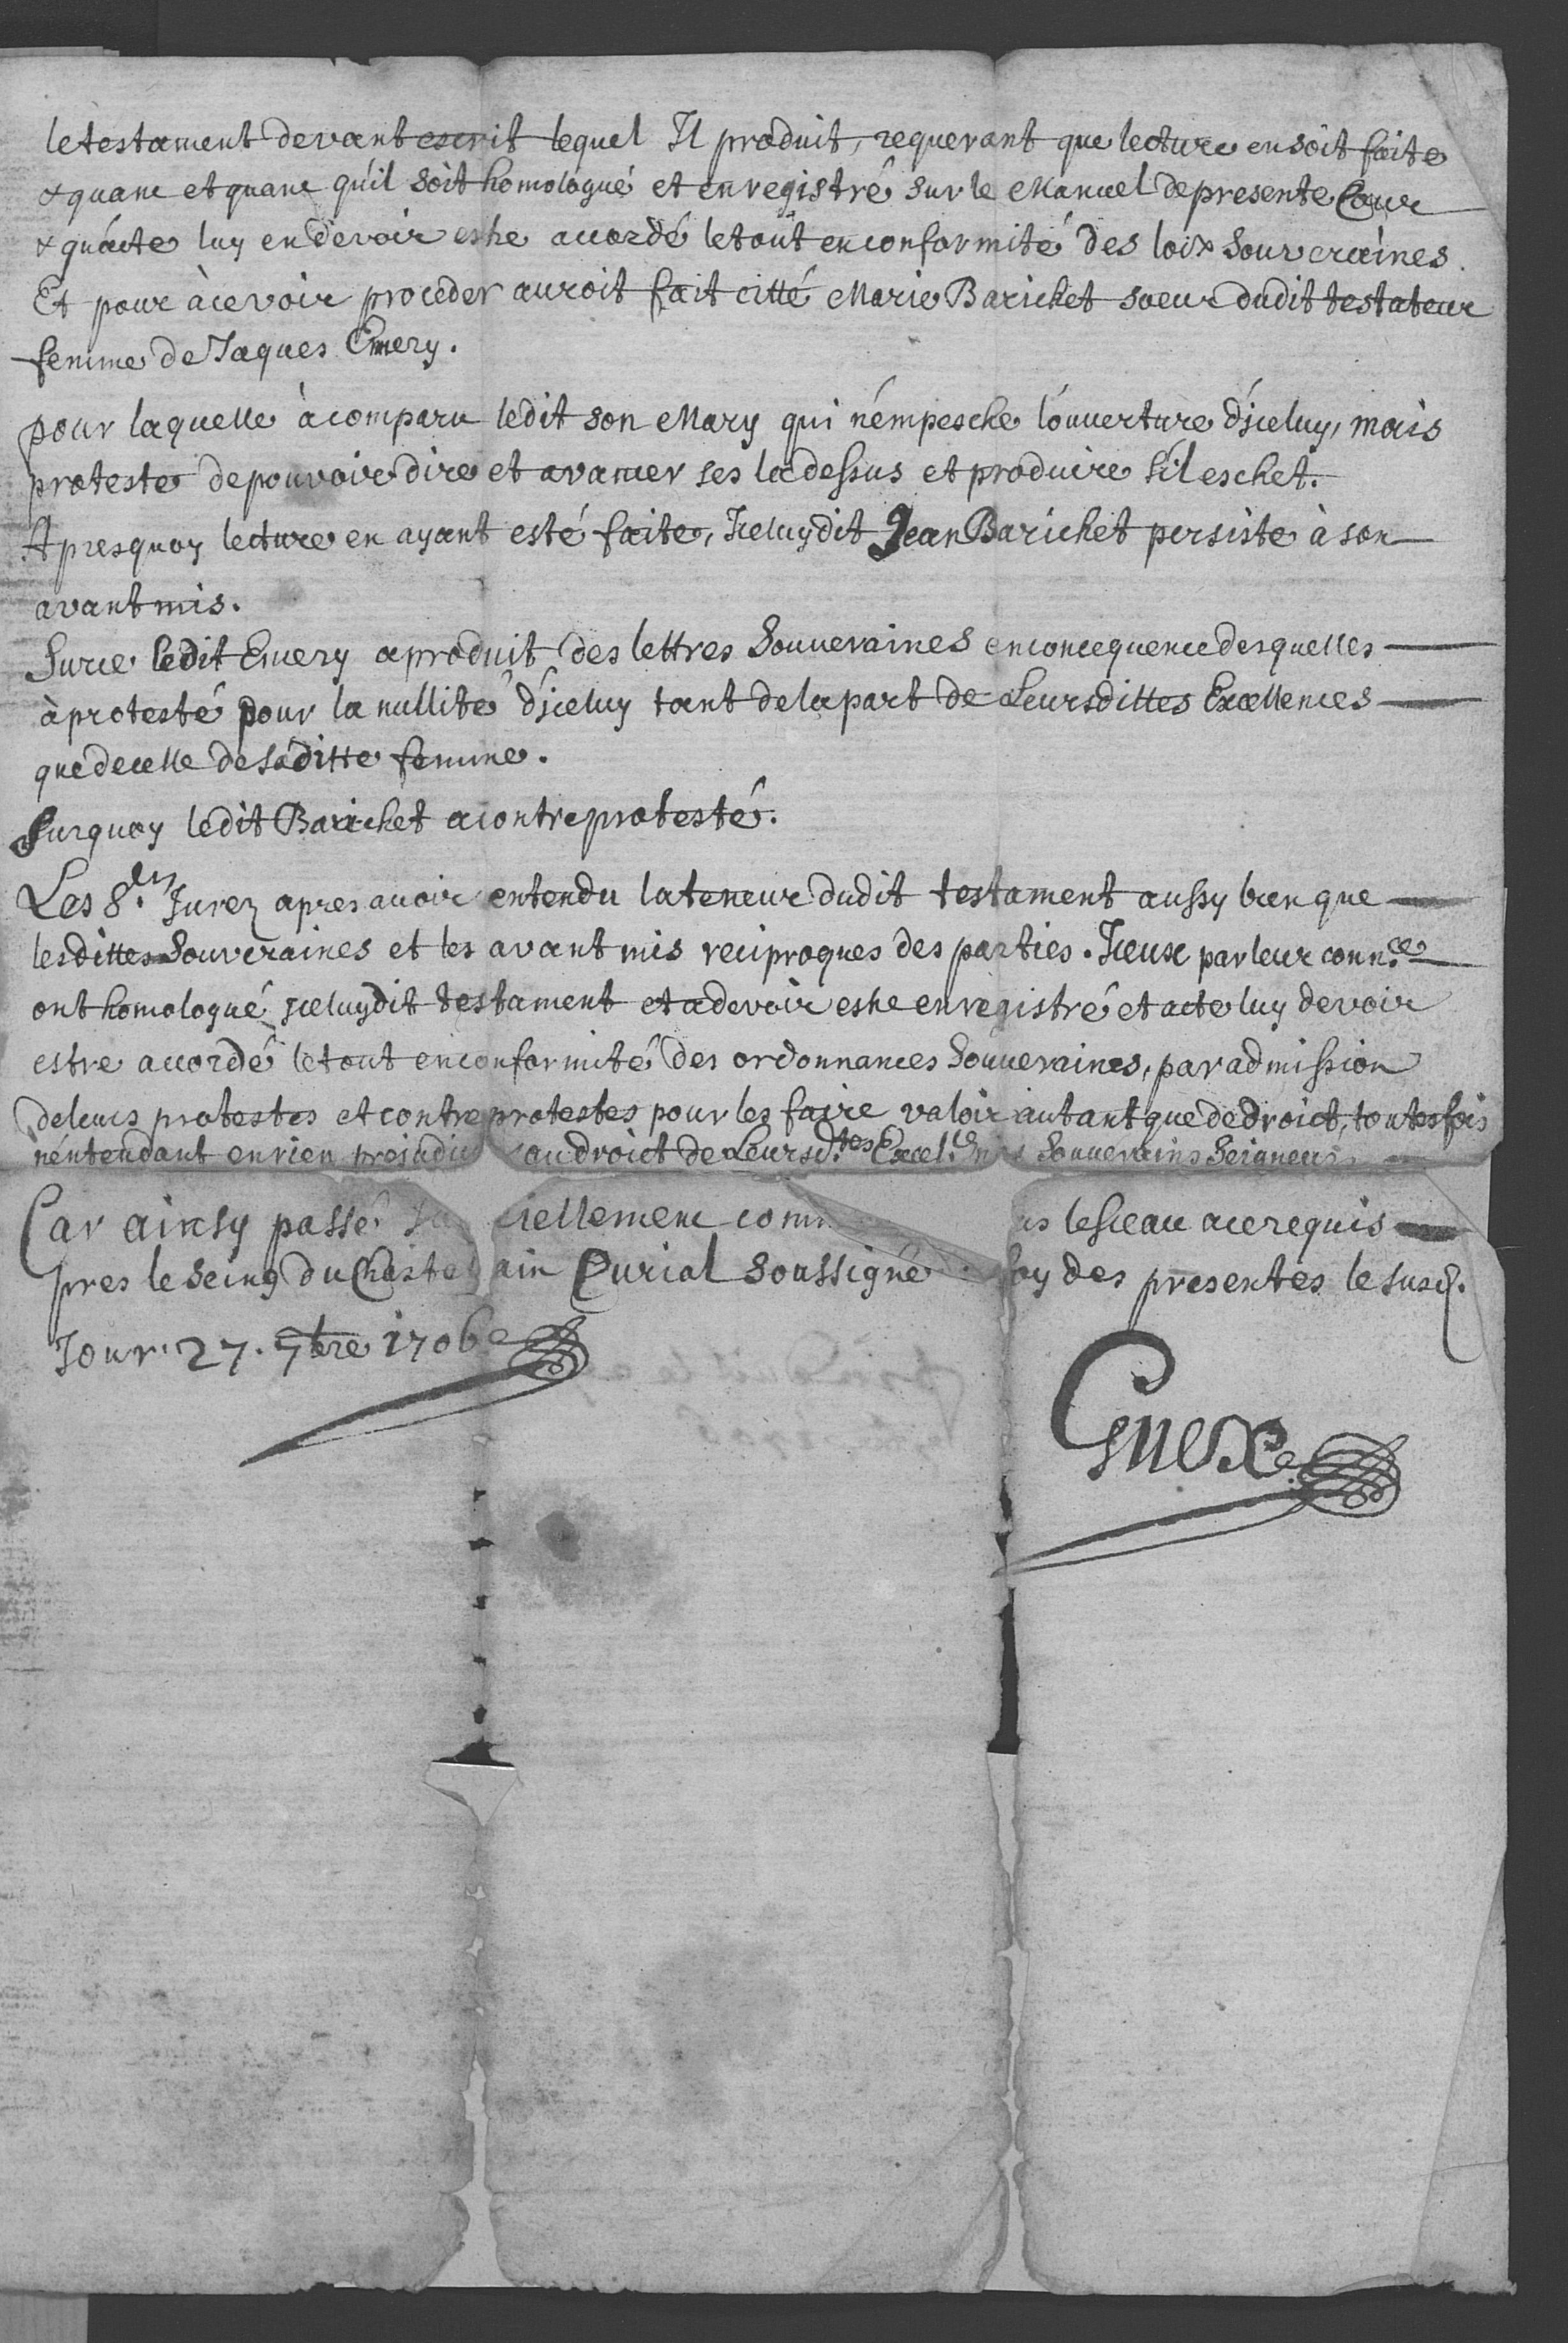 le testament devant escrit lequel Il produit, requerant que lecture en soit faite
& quant et quant qu'il soit homologué et enregistré sur le Manuel de presente Cour
& qu'acte luy en devoir estre accordé le tout en conformité des loix Souveraines.
Et pour à ce voir proceder auroit fait citté Marie Barichet soeur dudit testateur
femme de Jaques Emery.
pour laquelle à comparu ledit son Mary qui n'empesche l'ouverture d'iceluy, mais
proteste de pouvoir dire et avancer ses la dessus et produire s'il eschet.
Apres quoy lecture en ayant esté faite, Iceluydit Jean Barichet persiste à son
avant mis.
Surce ledit Emery a produit des lettres Souveraines en consequence desquelles
à protesté pour la nullité d'iceluy tant de la part de Leursdittes Excellences
que de celle de saditte femme.
Surquoy ledit Barichet a contreprotesté.
Les Srs Jurez apres avoir entendu la teneur dudit testament aussy bien que
lesdittes Souveraines et les avant mis reciproques des parties. Iceux par leur conn.ce
ont homologué iceluydit testament et a devoir estre enregistré et acte luy devoir
estre accordé le tout en conformité des ordonnances Souveraines, par admission
de leurs protestes et contreprotestes pour les faire valoir autant que de droict, toutesfois
n'entendant en rien prejudic au droict de Leursd.tes Excel.ces nos Souverains Seigneurs
Car ainsy passé ciellement comm le sceau a ce requis
pres le seing du Chastelain Curial soussigné foy des presentes le susd.
Jour. 27. 7bre 1706
Guex